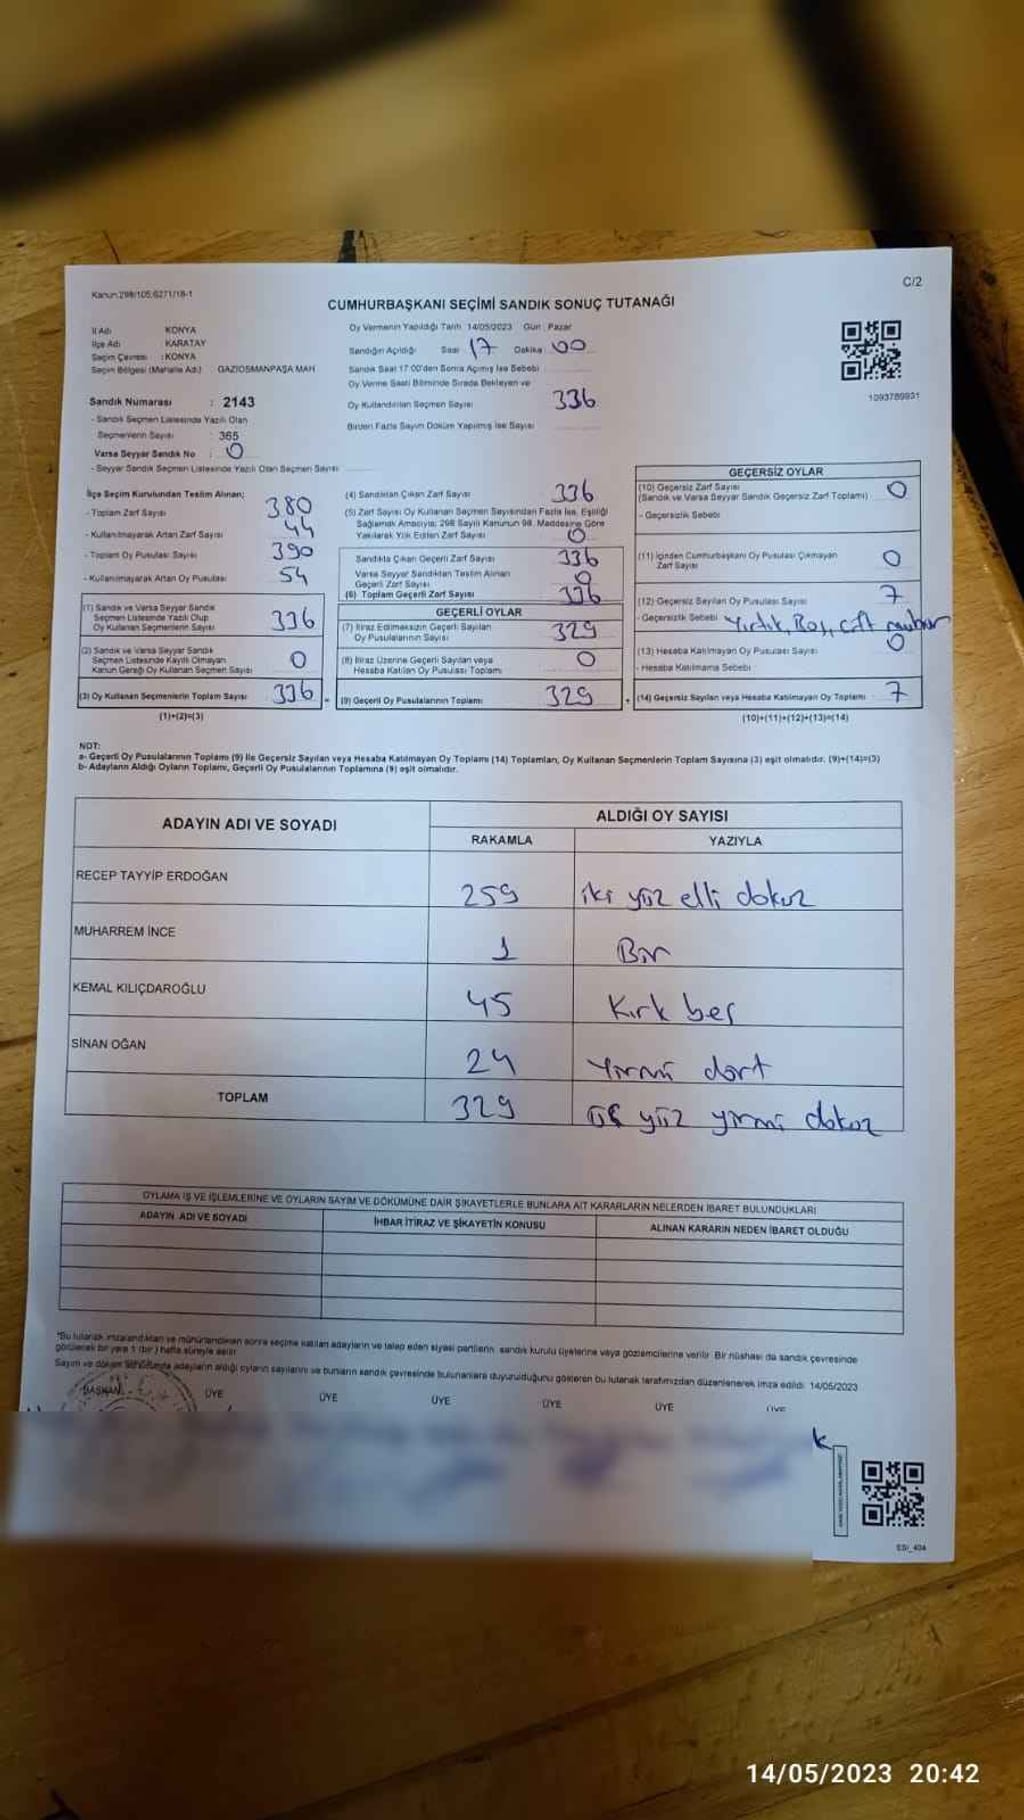 Kanun:298/105,6271/18-1
C/2
CUMHURBAŞKANI SEÇİMİ SANDIK SONUÇ TUTANAĞI
İl Adı KONYA
İlçe Adı KARATAY
Seçim Çevresi : KONYA
Seçim Bölgesi (Mahalle Adı) : GAZİOSMANPAŞA MAH
Sandık Numarası : 2143
- Sandık Seçmen Listesinde Yazılı Olan
Seçmenlerin Sayısı : 365
Varsa Seyyar Sandık No : 0
- Seyyar Sandık Seçmen Listesinde Yazılı Olan Seçmen Sayısı
Oy Vermenin Yapıldığı Tarih 14/05/2023 Gün : Pazar
Sandığın Açıldığı Saat 17 Dakika 00
Sandık Saat 17:00'den Sonra Açılmış İse Sebebi
Oy Verme Saati Bitiminde Sırada Bekleyen ve
Oy Kullandırılan Seçmen Sayısı 336
Birden Fazla Sayım Döküm Yapılmış İse Sayısı
1093789931
İlçe Seçim Kurulundan Teslim Alınan;
- Toplam Zarf Sayısı 380
- Kullanılmayarak Artan Zarf Sayısı 44
- Toplam Oy Pusulası Sayısı 390
- Kullanılmayarak Artan Oy Pusulası 54
(1) Sandık ve Varsa Seyyar Sandık
Seçmen Listesinde Yazılı Olup
Oy Kullanan Seçmenlerin Sayısı 336
(2) Sandık ve Varsa Seyyar Sandık
Seçmen Listesinde Kayıtlı Olmayan
Kanun Gereği Oy Kullanan Seçmen Sayısı 0
(3) Oy Kullanan Seçmenlerin Toplam Sayısı 336 =
(1)+(2)=(3)
(4) Sandıktan Çıkan Zarf Sayısı 336
(5) Zarf Sayısı Oy Kullanan Seçmen Sayısından Fazla İse, Eşitliği
Sağlamak Amacıyla; 298 Sayılı Kanunun 98. Maddesine Göre
Yakılarak Yok Edilen Zarf Sayısı 0
Sandıkta Çıkan Geçerli Zarf Sayısı 336
Varsa Seyyar Sandıktan Teslim Alınan
Geçerli Zarf Sayısı 0
(6) Toplam Geçerli Zarf Sayısı 336
GEÇERLİ OYLAR
(7) İtiraz Edilmeksizin Geçerli Sayılan
Oy Pusulalarının Sayısı 329
(8) İtiraz Üzerine Geçerli Sayılan veya
Hesaba Katılan Oy Pusulası Toplamı 0
(9) Geçerli Oy Pusulalarının Toplamı 329 +
GEÇERSİZ OYLAR
(10) Geçersiz Zarf Sayısı
(Sandık ve Varsa Seyyar Sandık Geçersiz Zarf Toplamı) 0
- Geçersizlik Sebebi
(11) İçinden Cumhurbaşkanı Oy Pusulası Çıkmayan
Zarf Sayısı 0
(12) Geçersiz Sayılan Oy Pusulası Sayısı 7
- Geçersizlik Sebebi Yırtık, Boş, çift mühür
(13) Hesaba Katılmayan Oy Pusulası Sayısı 0
- Hesaba Katılmama Sebebi
(14) Geçersiz Sayılan veya Hesaba Katılmayan Oy Toplamı 7
(10)+(11)+(12)+(13)=(14)
NOT:
a- Geçerli Oy Pusulalarının Toplamı (9) ile Geçersiz Sayılan veya Hesaba Katılmayan Oy Toplamı (14) Toplamları, Oy Kullanan Seçmenlerin Toplam Sayısına (3) eşit olmalıdır. (9)+(14)=(3)
b- Adayların Aldığı Oyların Toplamı, Geçerli Oy Pusulalarının Toplamına (9) eşit olmalıdır.
ADAYIN ADI VE SOYADI
ALDIĞI OY SAYISI
RAKAMLA YAZIYLA
RECEP TAYYİP ERDOĞAN 259 iki yüz elli dokuz
MUHARREM İNCE 1 Bir
KEMAL KILIÇDAROĞLU 45 Kırk beş
SİNAN OĞAN 24 Yirmi dört
TOPLAM 329 üç yüz yirmi dokuz
OYLAMA İŞ VE İŞLEMLERİNE VE OYLARIN SAYIM VE DÖKÜMÜNE DAİR ŞİKAYETLERLE BUNLARA AİT KARARLARIN NELERDEN İBARET BULUNDUKLARI
ADAYIN ADI VE SOYADI İHBAR İTİRAZ VE ŞİKAYETİN KONUSU ALINAN KARARIN NEDEN İBARET OLDUĞU
"Bu tutanak imzalandıktan ve mühürlendikten sonra seçime katılan adayların ve talep eden siyasi partilerin, sandık kurulu üyelerine veya gözlemcilerine verilir. Bir nüshası da sandık çevresinde
görülecek bir yere 1 (bir) hafta süreyle asılır.
Sayım ve döküm sonucunda adayların aldığı oyların sayılarını ve bunların sandık çevresinde bulunanlara duyurulduğunu gösteren bu tutanak tarafımızdan düzenlenerek imza edildi. 14/05/2023
BAŞKAN ÜYE ÜYE ÜYE ÜYE ÜYE ÜYE
k
ESI_404
14/05/2023 20:42